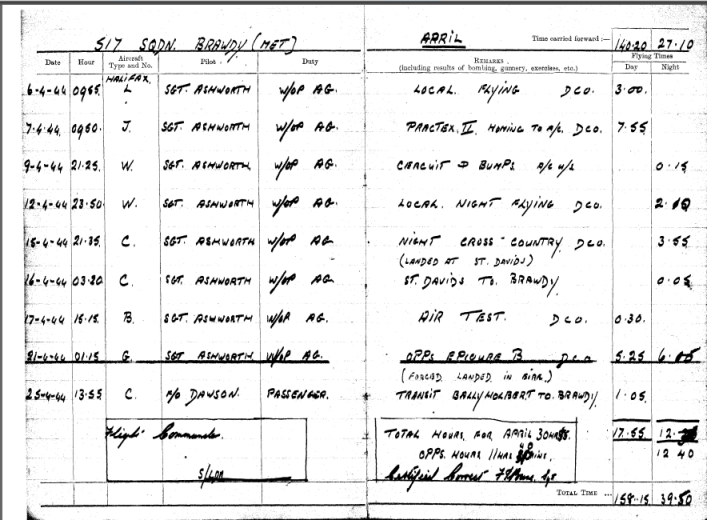 517 SQDN. BRAWDY (MET) APRIL Time carried forward :— 140.20 27.10
Date Hour Aircraft Type and No. Pilot Duty REMARKS (including results of bombing, gunnery, exercises, etc.) Flying Times Day Night
HALIFAX.
6-4-44 L SGT. ASHWORTH W/OP AG. LOCAL. FLYING DCO. 3.00.
7-4-44. J. SGT. ASHWORTH W/OP AG. PRACTEX. II. HOMING TO A/C. DCO. 7.55
9-4-44 21.25. W. SGT. ASHWORTH W/OP AG. CIRCUIT & BUMPS A/C U/S 0.15
12-4-44 23.50. W. SGT. ASHWORTH W/OP AG. LOCAL. NIGHT FLYING DCO.
15-4-44 21.35. C. SGT. ASHWORTH W/OP AG. NIGHT CROSS-COUNTRY. DCO. 3.55
(LANDED AT ST. DAVIDS)
16-4-44 03.20 C. SGT. ASHWORTH W/OP AG. ST. DAVIDS TO. BRAWDY 0.05
17-4-44 15.15. B. SGT. ASHWORTH W/OP AG. AIR TEST. DCO. 0.30.
21-4-44 01.15 G. SGT ASHWORTH W/OP AG. OPPS EPICURE B DCO 5.25
(FORCED LANDED IN EIRE.)
25-4-44 13.55 C. DAWSON. PASSENGER. TRANSIT BALLYHOLBERT TO. BRAWDY 1.05.
Flight Commander.
S/LDR
TOTAL HOURS FOR APRIL 17.55 12.
OPPS. HOURS 11 HRS 12 40
Certified Correct
TOTAL TIME ... 158.15 39.50